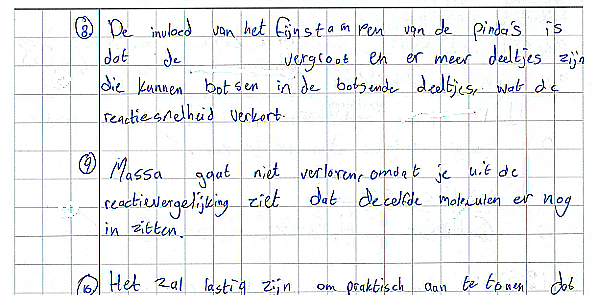 8 De invloed van het fijnstampen van de pinda's is
dat de vergroot en er meer deeltjes zijn
die kunnen botsen in de botsende deeltjes, wat de
reactiesnelheid verkort.
9 Massa gaat niet verloren, omdat je uit de
reactievergelijking ziet dat dezelfde moleculen er nog
in zitten.
10 Het zal lastig zijn om praktisch aan te tonen dat